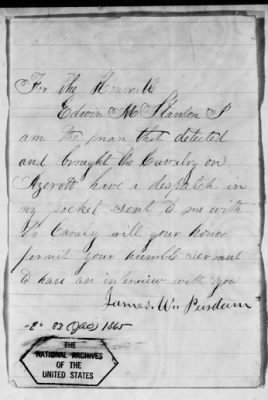 For the Honorable
Edwin M Stanton I
am the man that detected
and brought the Cavalry on
Azerott have a despatch in
my pocket sent to me with
by Cavalry will your honor
permit your humble servant
to have an interview with you
James. Wm Purdum
83 1865
THE
NATIONAL ARCHIVES
OF THE
UNITED STATES